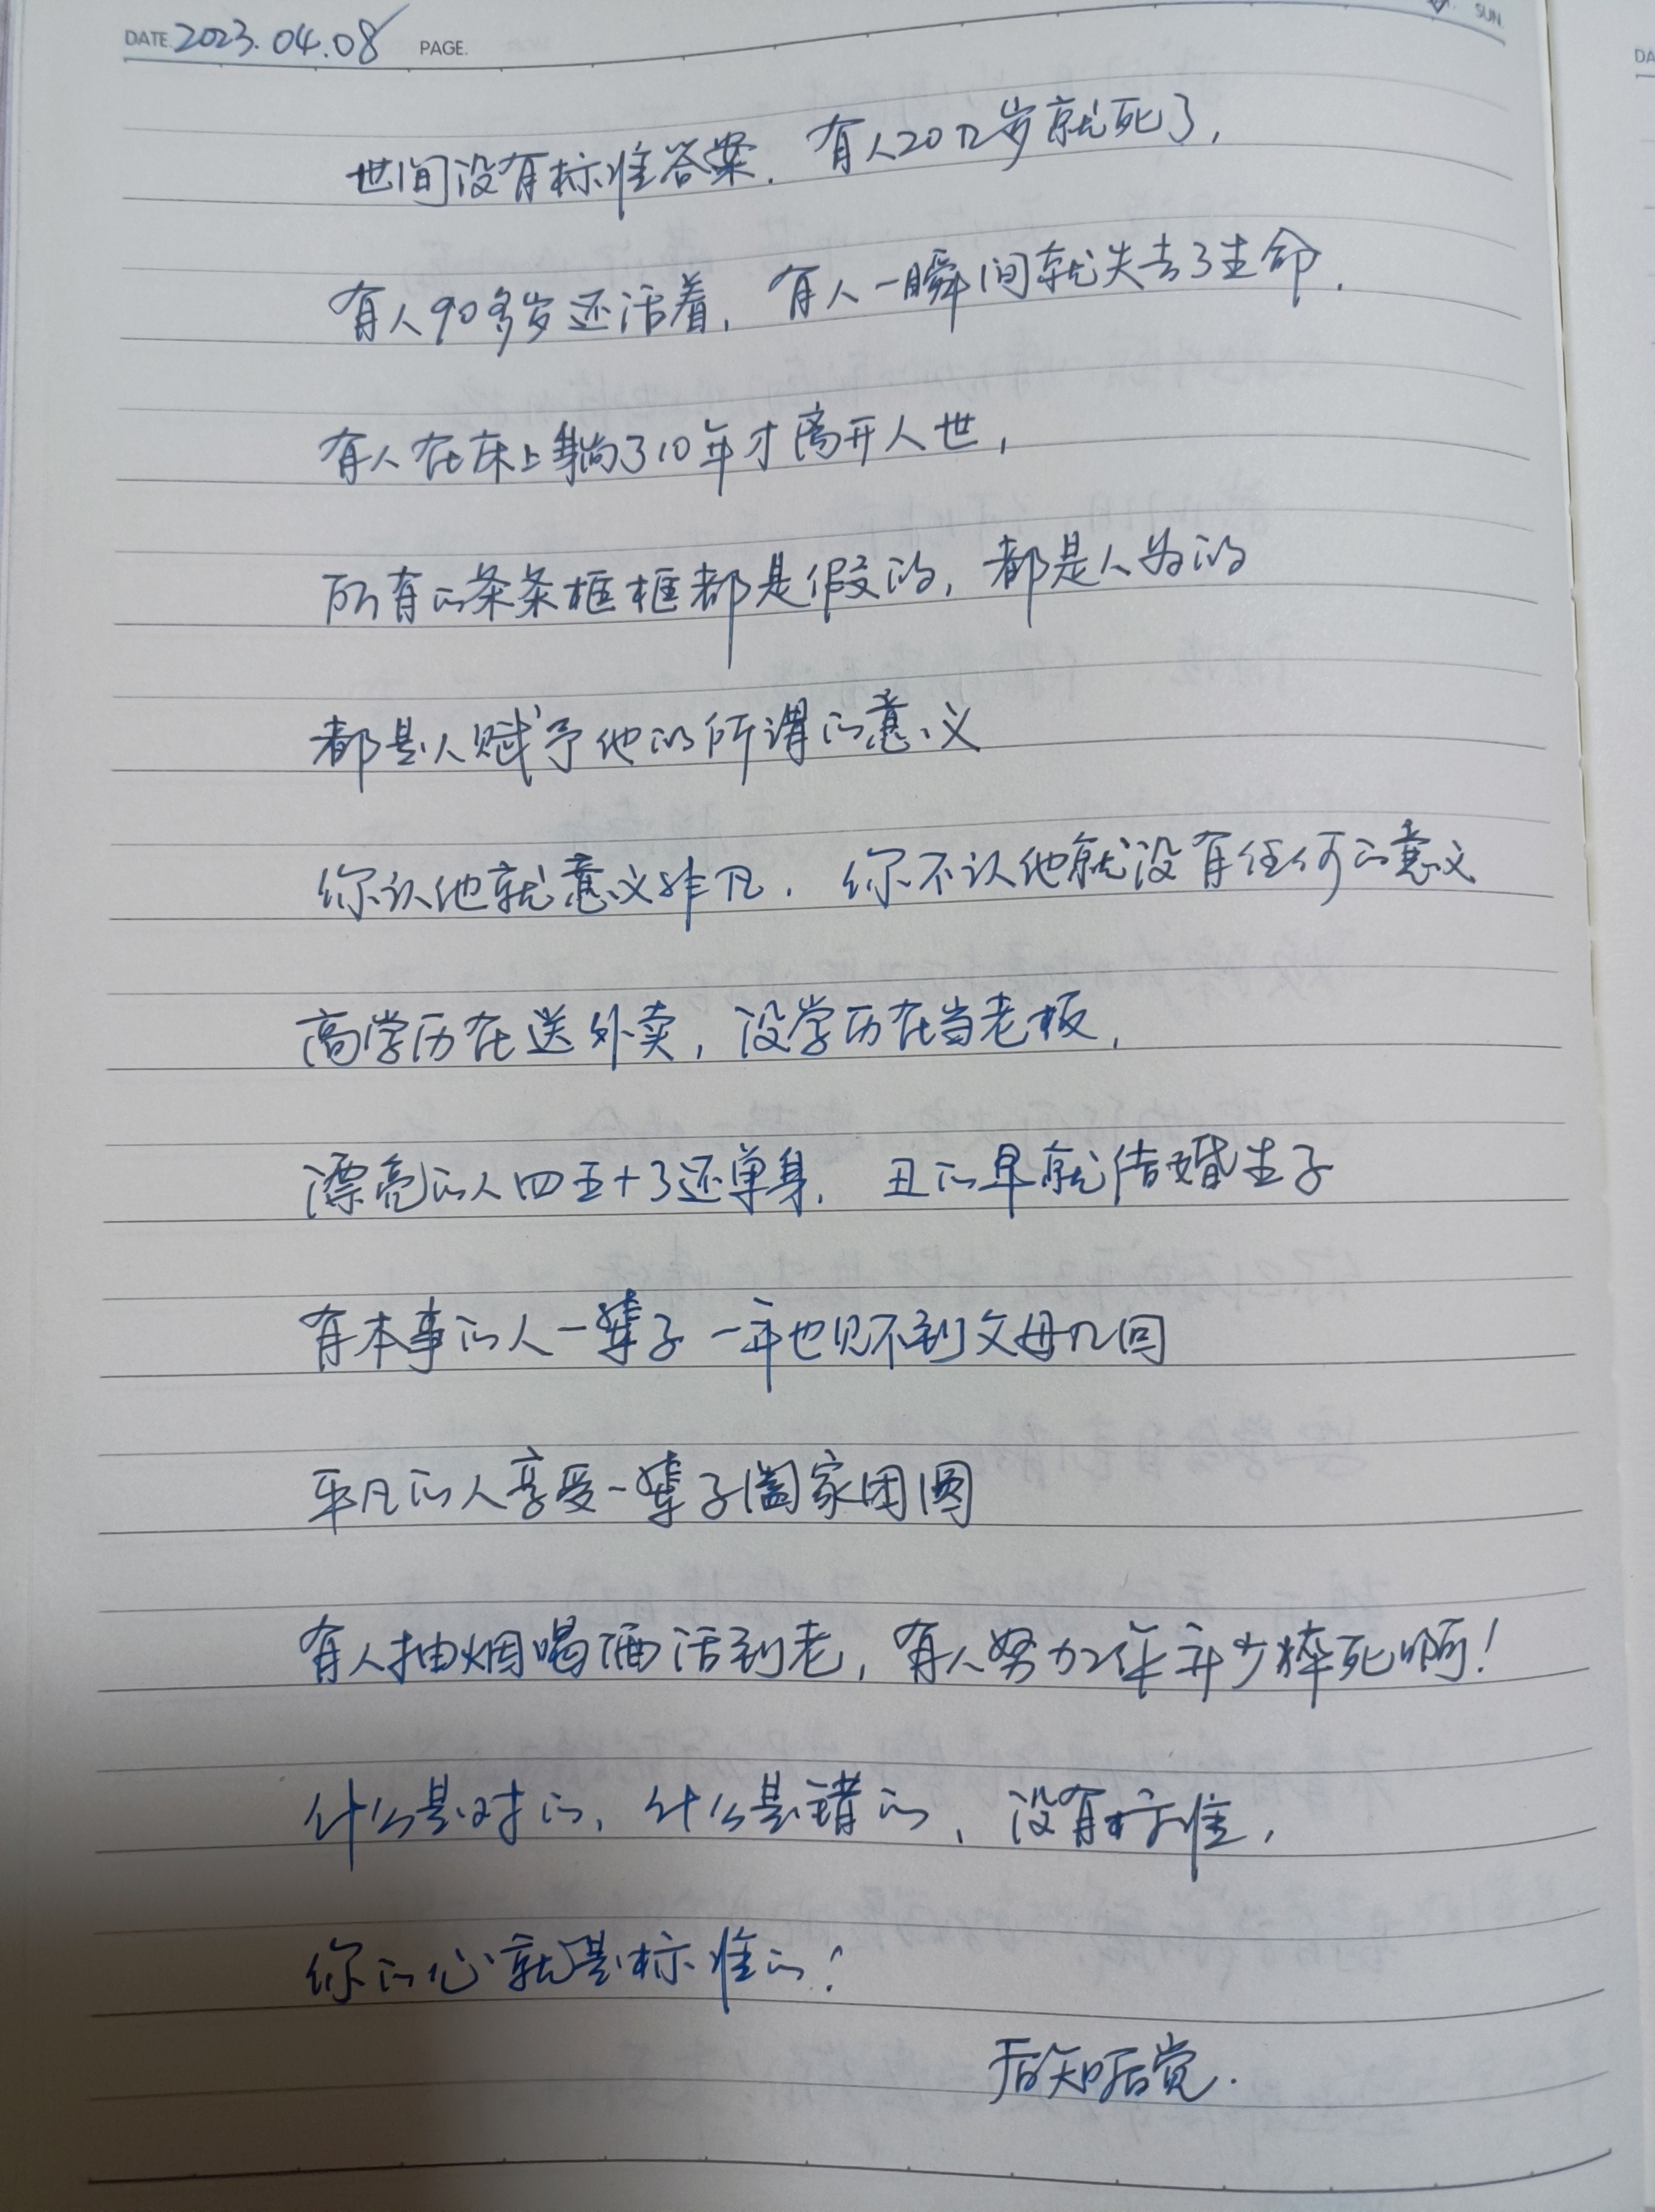 DATE 2023.04.08 PAGE.
SUN
世间没有标准答案. 有人20几岁就死了,
有人90多岁还活着, 有人一瞬间就失去了生命.
有人在床上躺了10年才离开人世,
所有的条条框框都是假的, 都是人为的
都是人赋予他的所谓的意义
你认他就意义非凡. 你不认他就没有任何的意义
高学历在送外卖, 没学历在当老板,
漂亮的人四五十了还单身. 丑的早就结婚生子
有本事的人一辈子 一年也见不到父母几回
平凡的人享受一辈子阖家团圆
有人抽烟喝酒活到老, 有人努力年少猝死啊!
什么是对的, 什么是错的, 没有标准,
你的心就是标准的!
后知后觉.